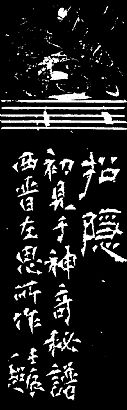 招隱
初見于神奇秘譜
西晋左思所作